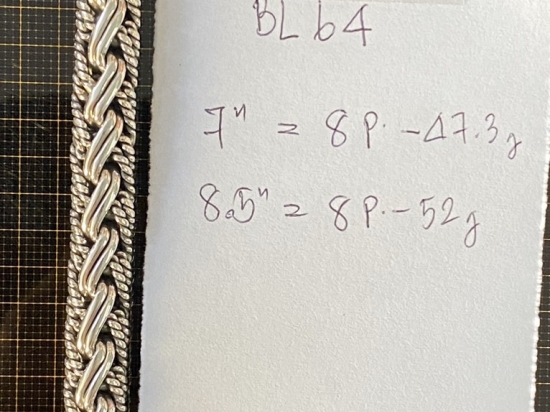 BL64
7" = 8 P. - 47.3g
8.5" = 8 P. - 52g